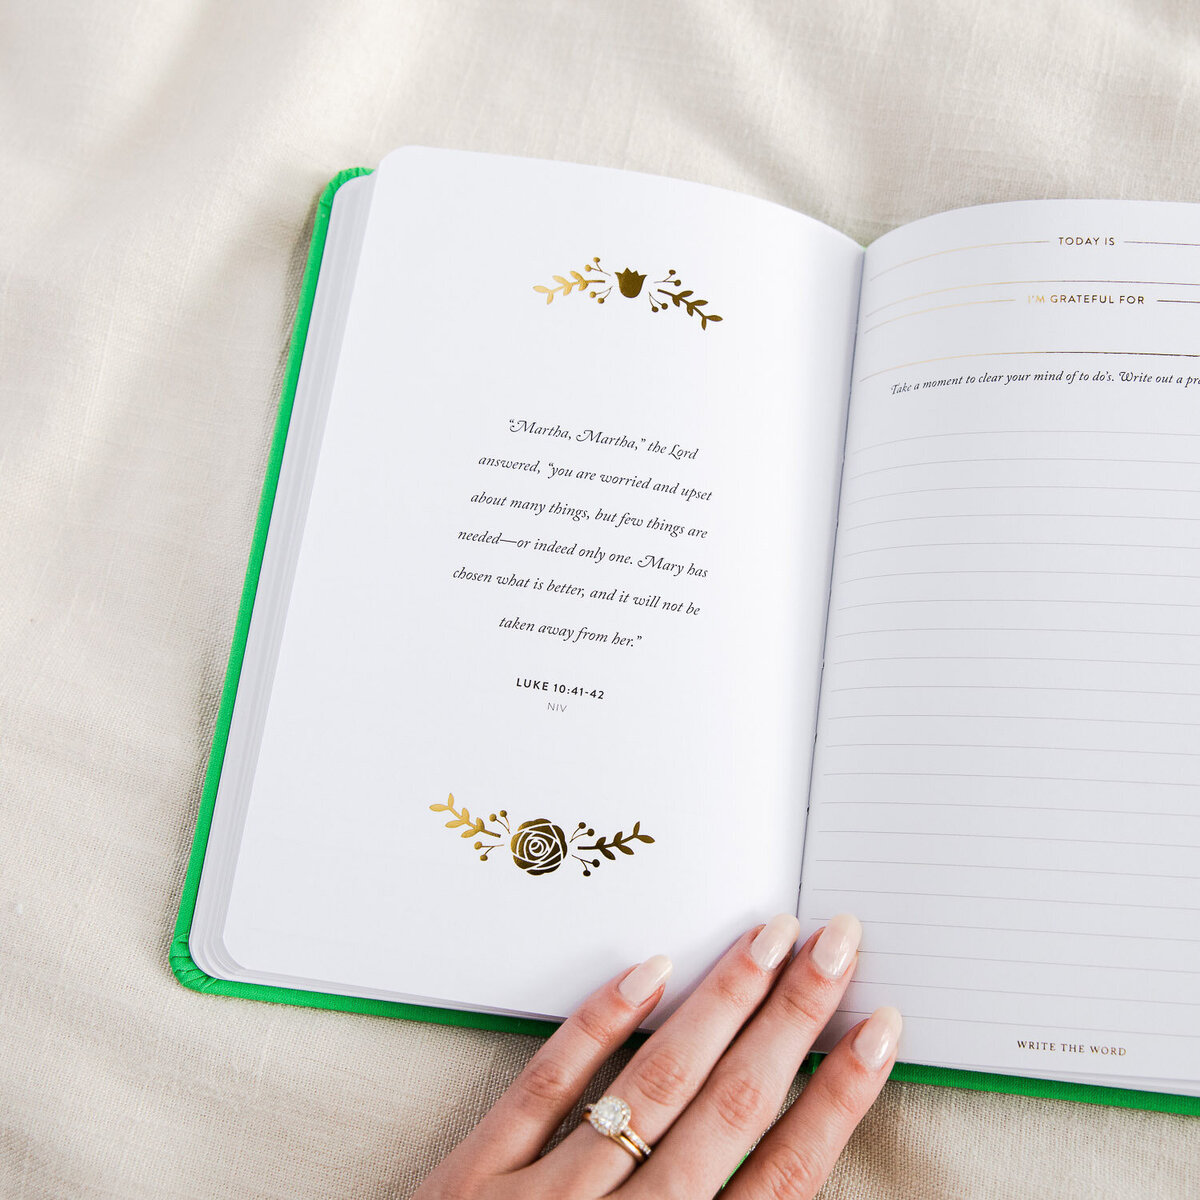 “Martha, Martha,” the Lord
answered, “you are worried and upset
about many things, but few things are
needed—or indeed only one. Mary has
chosen what is better, and it will not be
taken away from her.”
LUKE 10:41-42
NIV
TODAY IS
I'M GRATEFUL FOR
Take a moment to clear your mind of to do's. Write out a
WRITE THE WORD